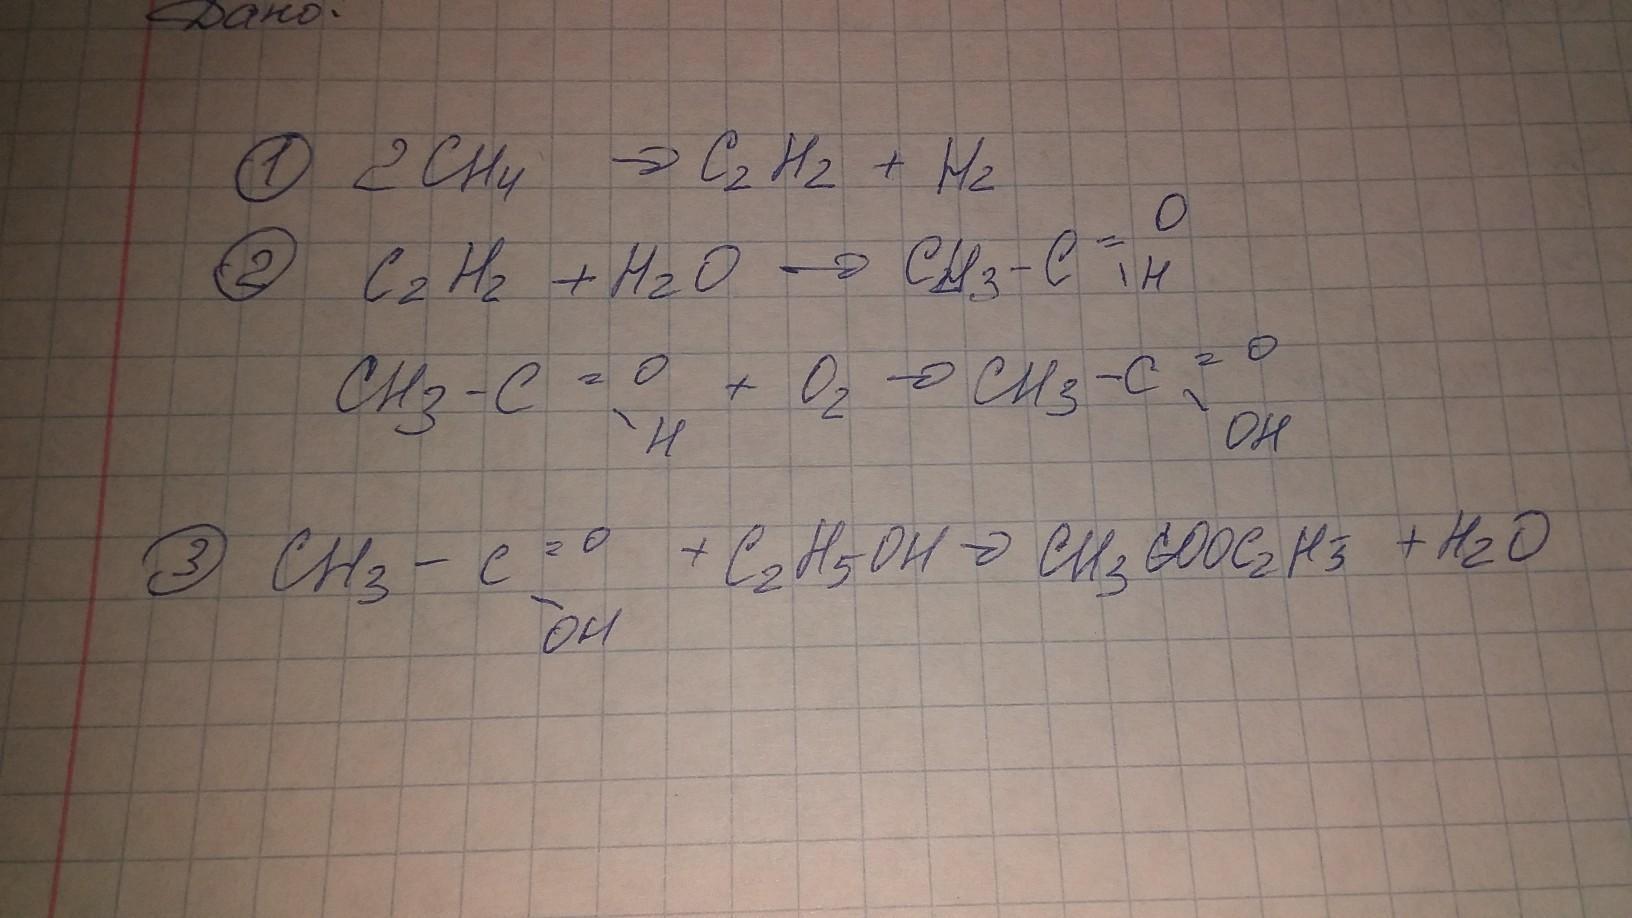 Дано:
① 2CH4 → C2H2 + H2
② C2H2 + H2O → CH3-C=O
\H
CH3-C=O + O2 → CH3-C=O
\H \OH
③ CH3-C=O + C2H5OH → CH3COOC2H5 + H2O
\OH